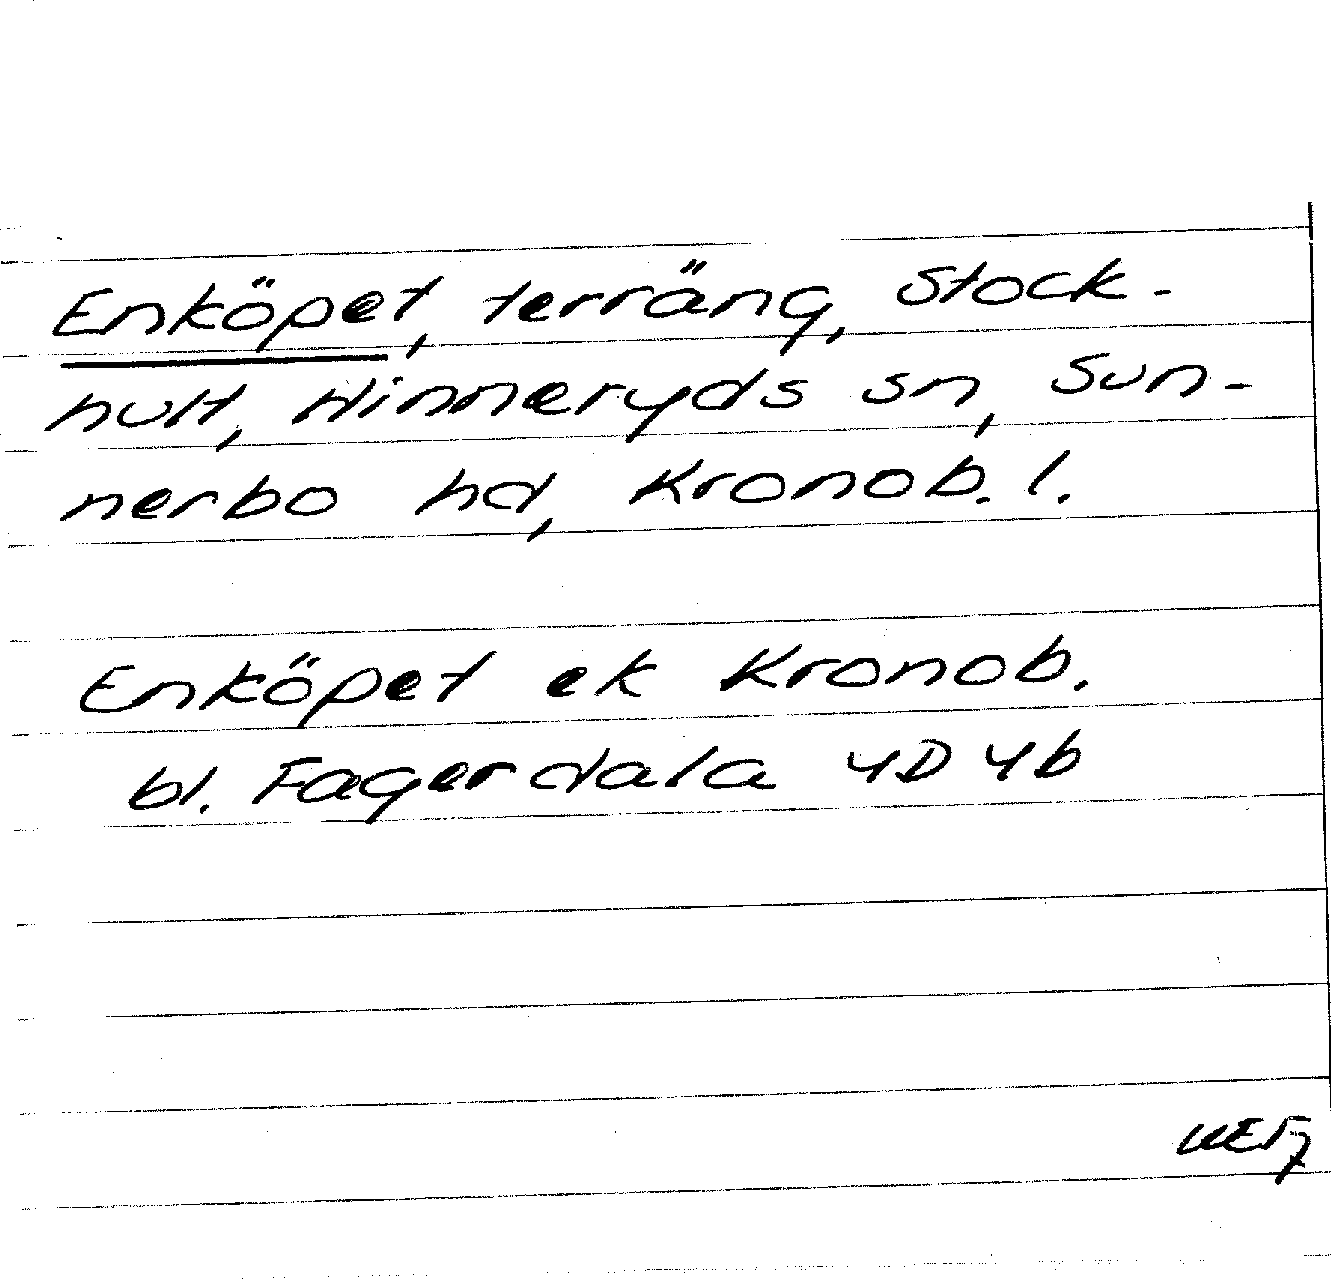 Enköpet, terräng, Stock-
hult, Hinneryds sn, Sun-
nerbo hd, Kronob. l.
Enköpet ek Kronob.
bl. Fagerdala 4D 4b